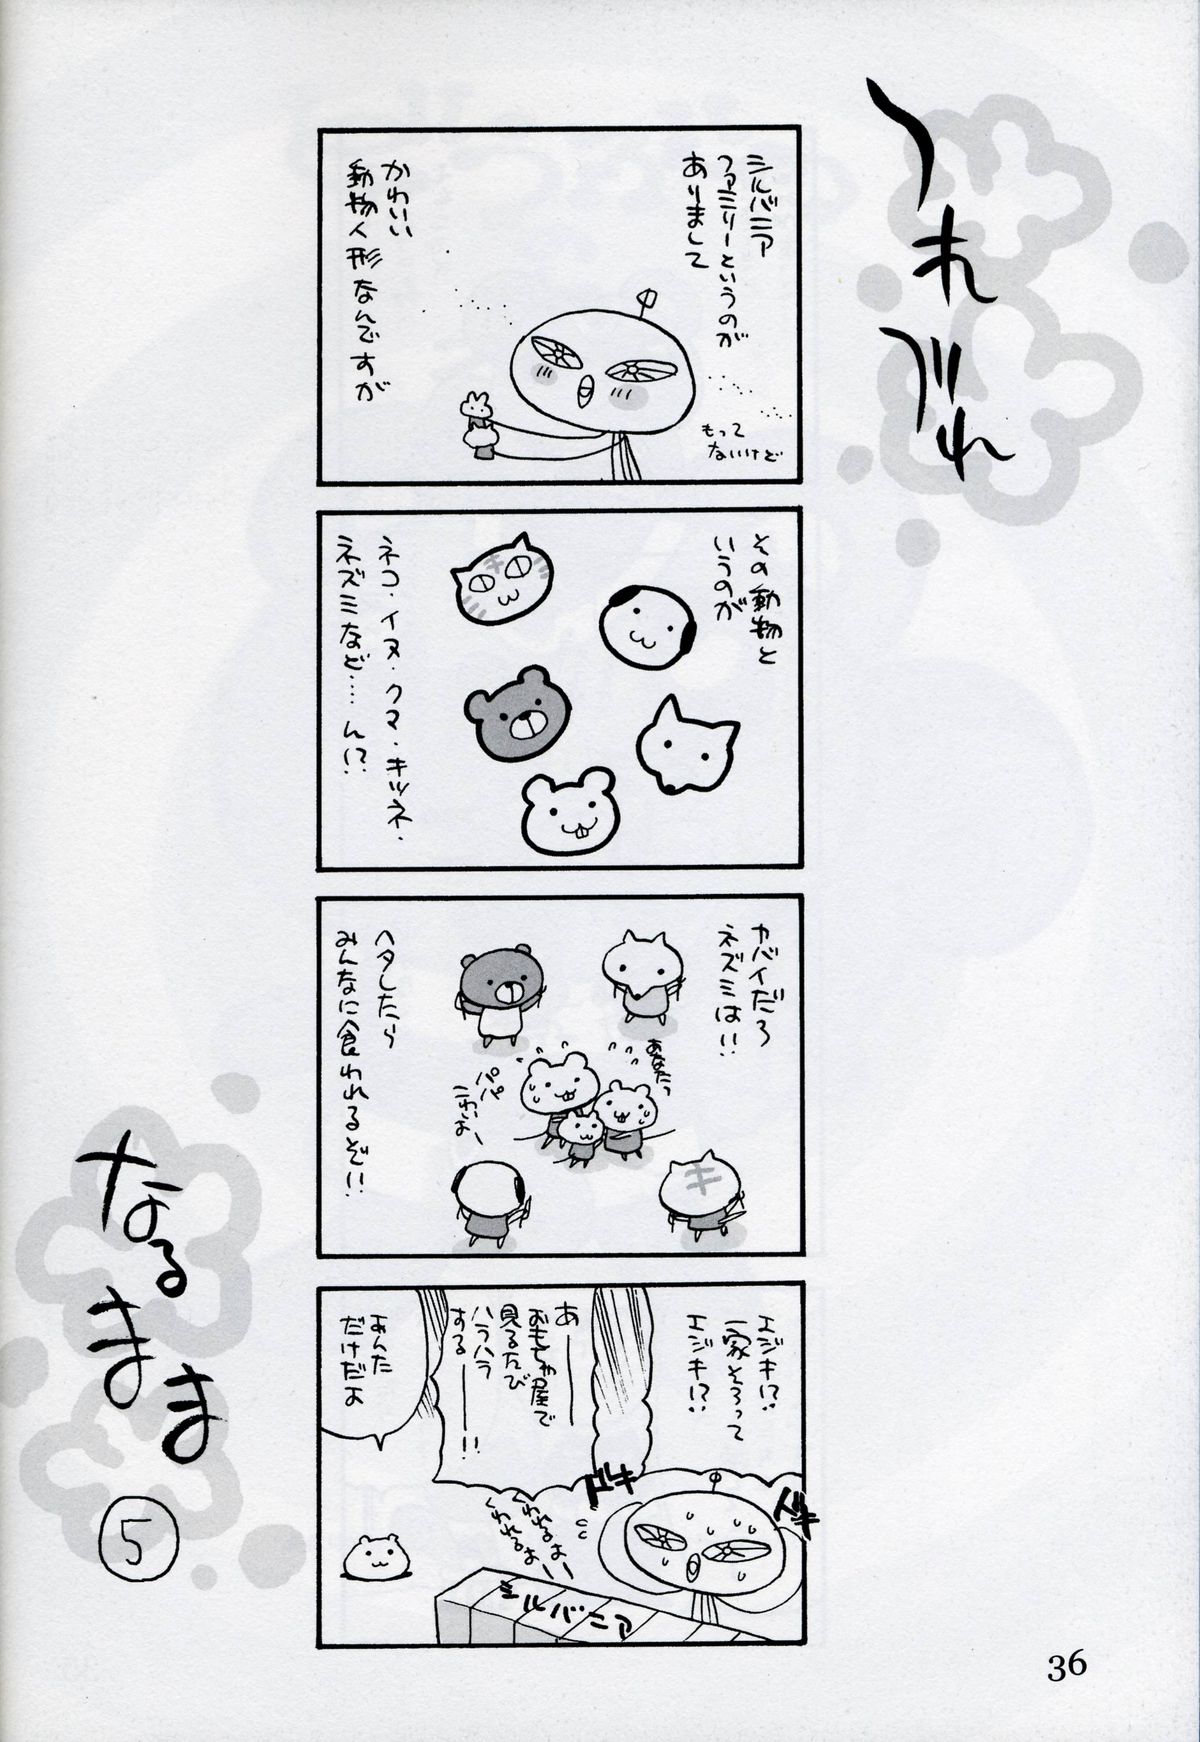 つれづれ
シルバニア
ファミリーというのが
ありまして
かわいい
動物人形なんですが
もって
ないけど
その動物と
いうのが
ネコ・イヌ・クマ・キツネ・
ネズミなど…ん!?
ヤバイだろ
ネズミは!!
あなたっ
パパ
こわいよー
ヘタしたら
みんなに食われるぞ!!
エジキ!?
一家そろって
エジキ!?
あー
おもちゃ屋で
見るたび
ハラハラ
するー!!
あんた
だけだよ
ドキ
ドキ
くわれるよー
くわれるよー
シルバニア
なるまま
5
36